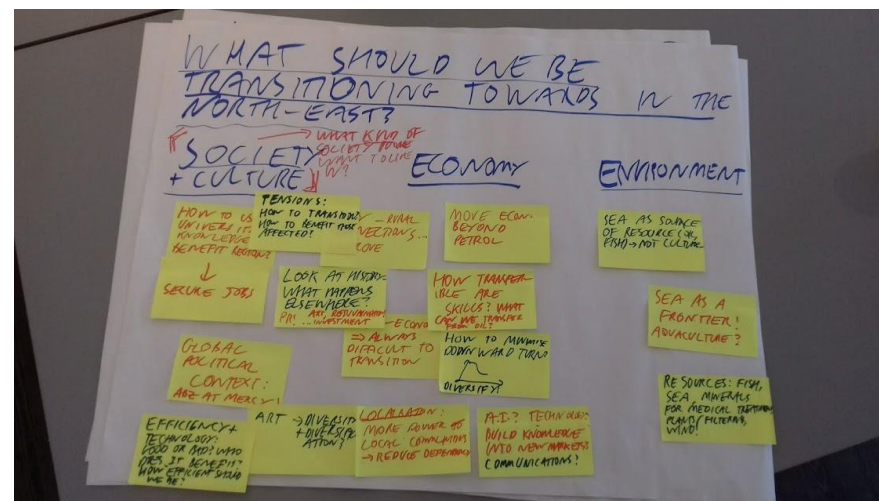 WHAT SHOULD WE BE
TRANSITIONING TOWARDS IN THE
NORTH-EAST?
→ WHAT KIND OF
SOCIETY DO WE
WANT TO LIVE
IN?
SOCIETY
+ CULTURE
ECONOMY
ENVIRONMENT
HOW TO US
UNIVERSIT
KNOWLEDGE
BENEFIT REGION?
↓
SECURE JOBS
TENSIONS:
HOW TO TRANSITION
HOW TO BENEFIT
AFFECTED?
RURAL
MOVE ECON.
BEYOND
PETROL
SEA AS SOURCE
OF RESOURCE (OIL,
FISH) → NOT CULTURE
LOOK AT HISTORY
WHAT HAPPENS
ELSEWHERE?
ART,
INVESTMENT
HOW TRANSFER
IBLE ARE
SKILLS? WHAT
CAN WE TRANSFER
FROM OIL?
SEA AS A
FRONTIER!
AQUACULTURE?
⇒ ALWAYS
DIFFICULT TO
TRANSITION
HOW TO MINIMISE
DOWNWARD TURN?
DIVERSIFY!
GLOBAL
POLITICAL
CONTEXT:
AT MERCY!
RESOURCES: FISH,
SEA, MINERALS
FOR MEDICAL TREATMENT,
PLANTS/FILTERING,
WIND!
EFFICIENCY +
TECHNOLOGY:
GOOD OR BAD? WHO
DOES IT BENEFIT?
HOW EFFICIENT SHOULD
WE BE?
ART → DIVERSITY
+ DIVERSIFIC
ATION?
LOCALISATION:
MORE POWER TO
LOCAL COMMUNITIES
→ REDUCE DEPENDENCY
A.I.? TECHNOLOGY
BUILD KNOWLEDGE
INTO NEW MARKETS?
COMMUNICATIONS?